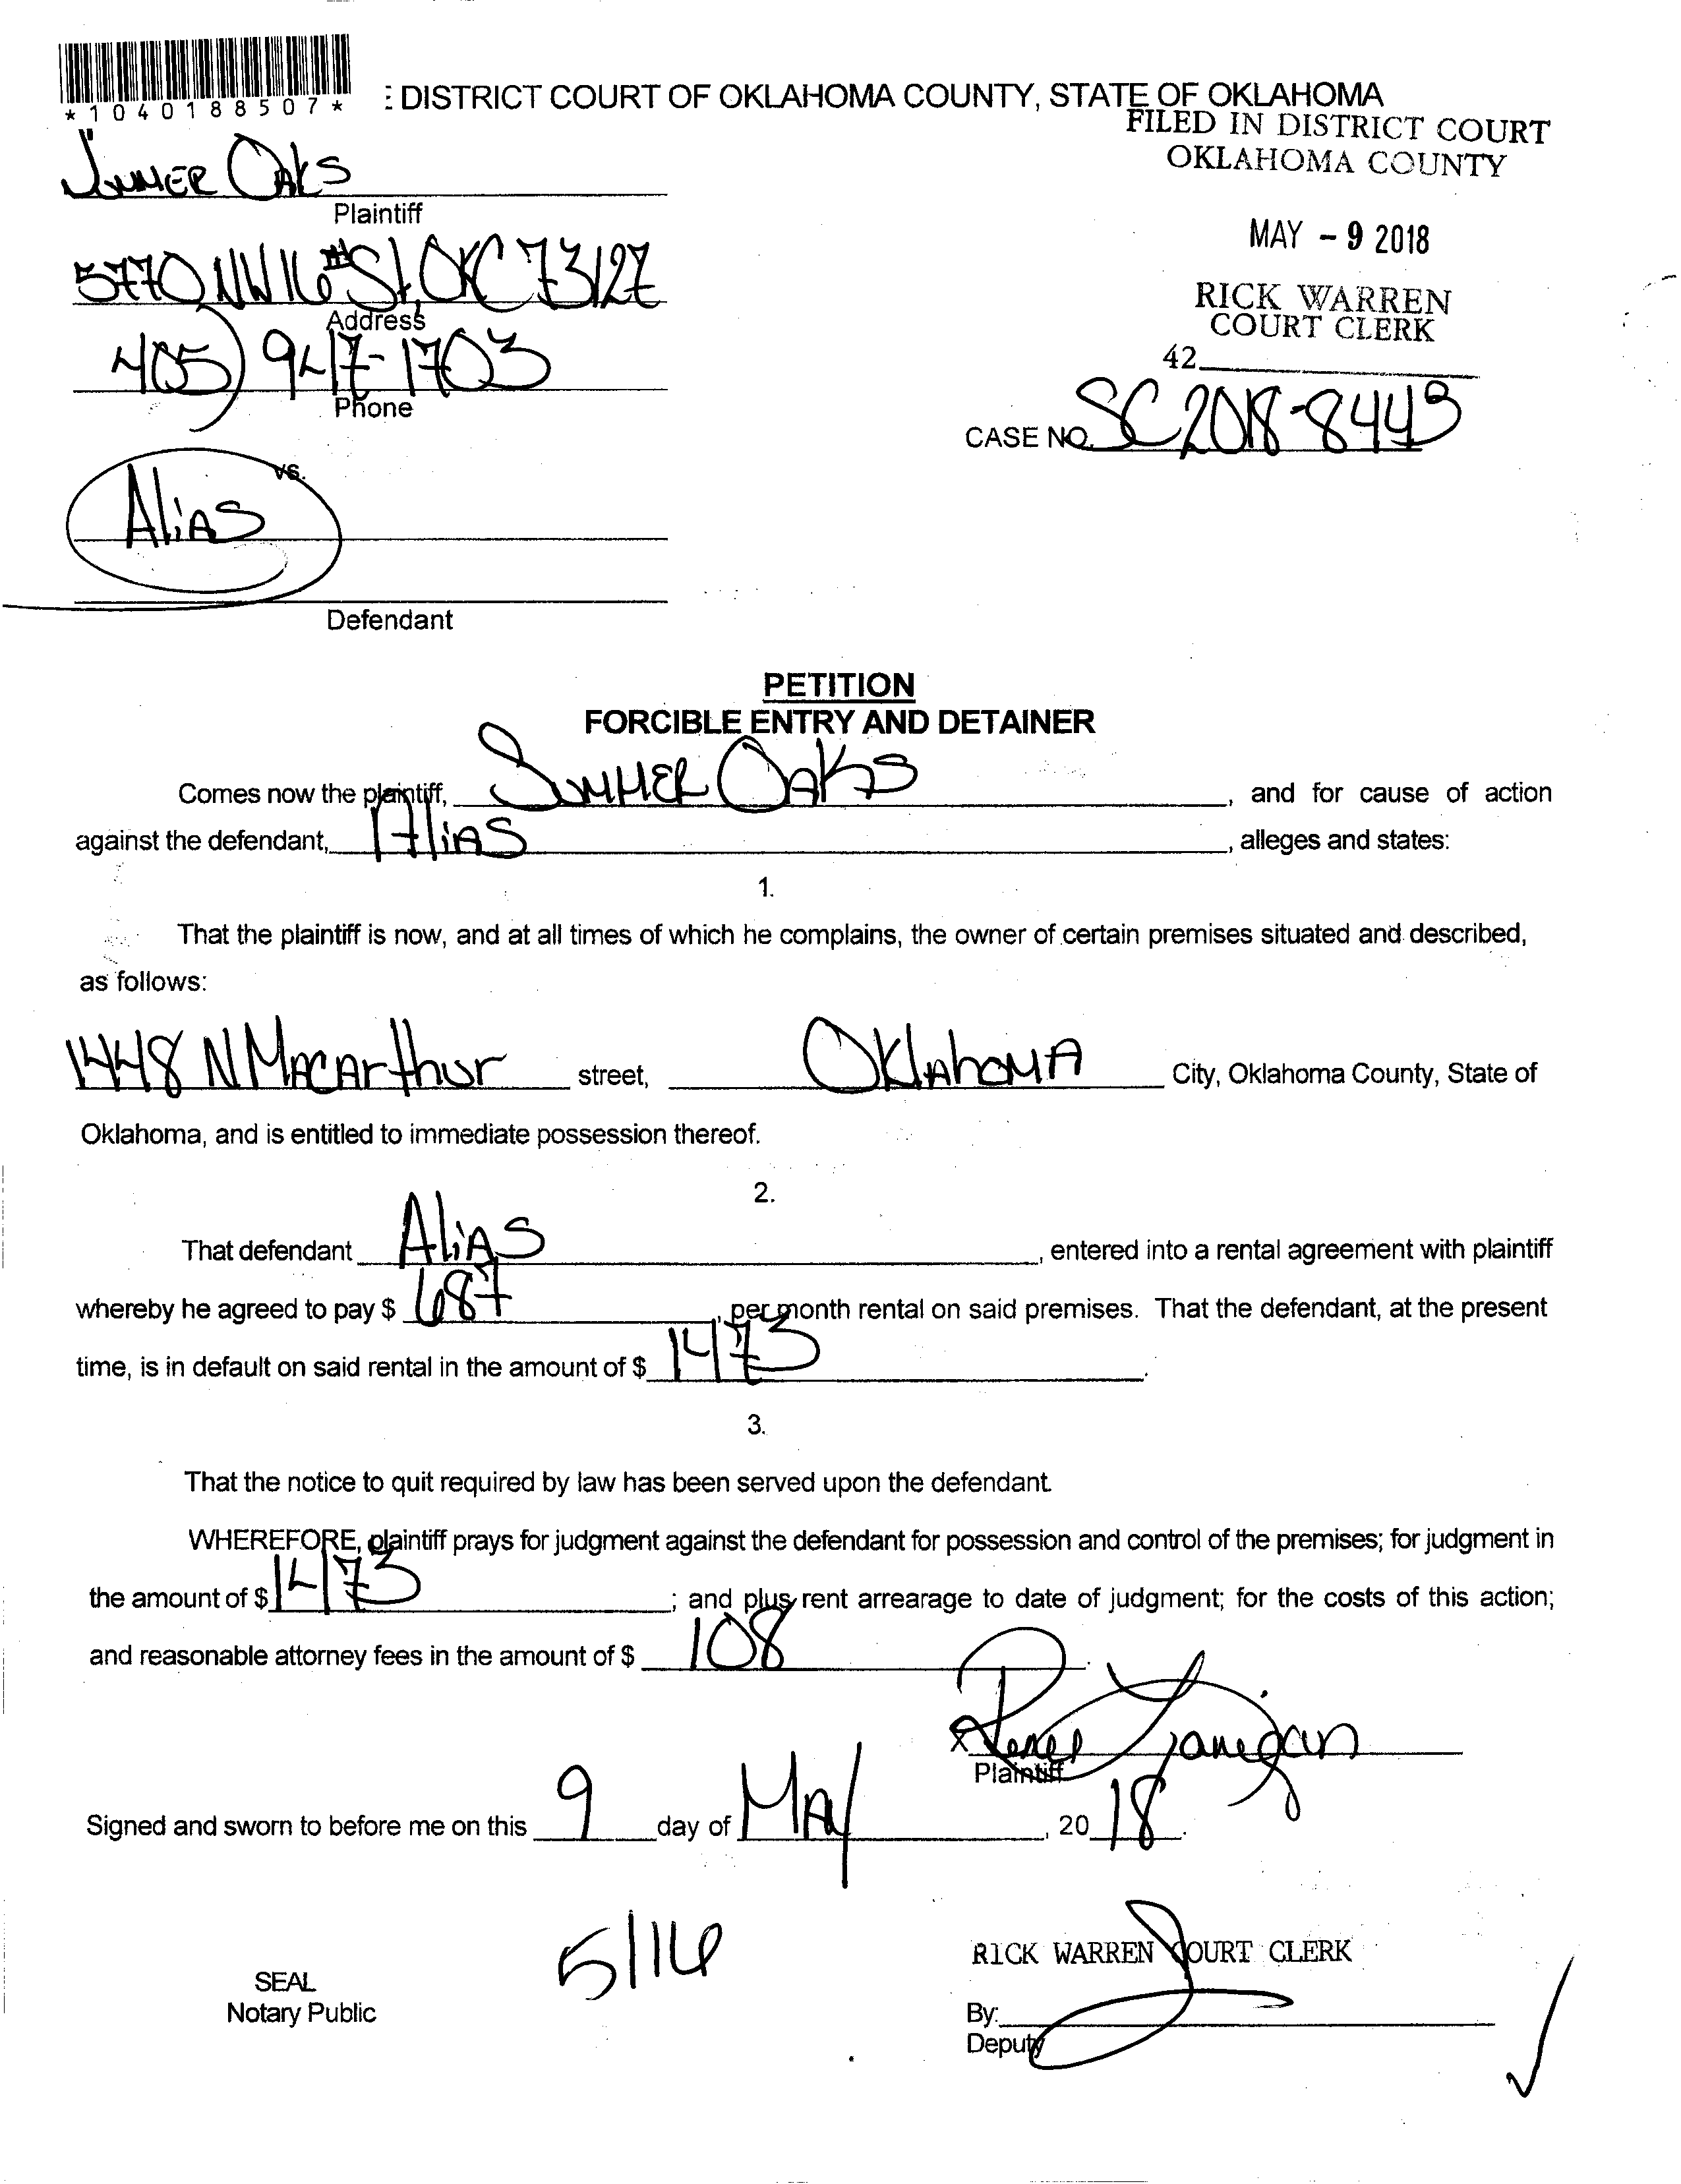 *1040188507*
: DISTRICT COURT OF OKLAHOMA COUNTY, STATE OF OKLAHOMA
FILED IN DISTRICT COURT
OKLAHOMA COUNTY
Summer Oaks
Plaintiff
MAY - 9 2018
5770 NW 16th St, OKC 73127
Address
RICK WARREN
COURT CLERK
405) 947-1703
Phone
42
CASE NO. SC 2018-8443
vs.
Alias
Defendant
PETITION
FORCIBLE ENTRY AND DETAINER
Comes now the plaintiff, Summer Oaks, and for cause of action
against the defendant, Alias, alleges and states:
1.
That the plaintiff is now, and at all times of which he complains, the owner of certain premises situated and described,
as follows:
1448 N MacArthur street, Oklahoma City, Oklahoma County, State of
Oklahoma, and is entitled to immediate possession thereof.
2.
That defendant Alias, entered into a rental agreement with plaintiff
whereby he agreed to pay $ 687, per month rental on said premises. That the defendant, at the present
time, is in default on said rental in the amount of $ 1473.
3.
That the notice to quit required by law has been served upon the defendant.
WHEREFORE, plaintiff prays for judgment against the defendant for possession and control of the premises; for judgment in
the amount of $ 1473; and plus rent arrearage to date of judgment; for the costs of this action;
and reasonable attorney fees in the amount of $ 108.
x Renee Lanigan
Plaintiff
Signed and sworn to before me on this 9 day of May, 2018.
5/16
RICK WARREN COURT CLERK
SEAL
Notary Public
By:
Deputy